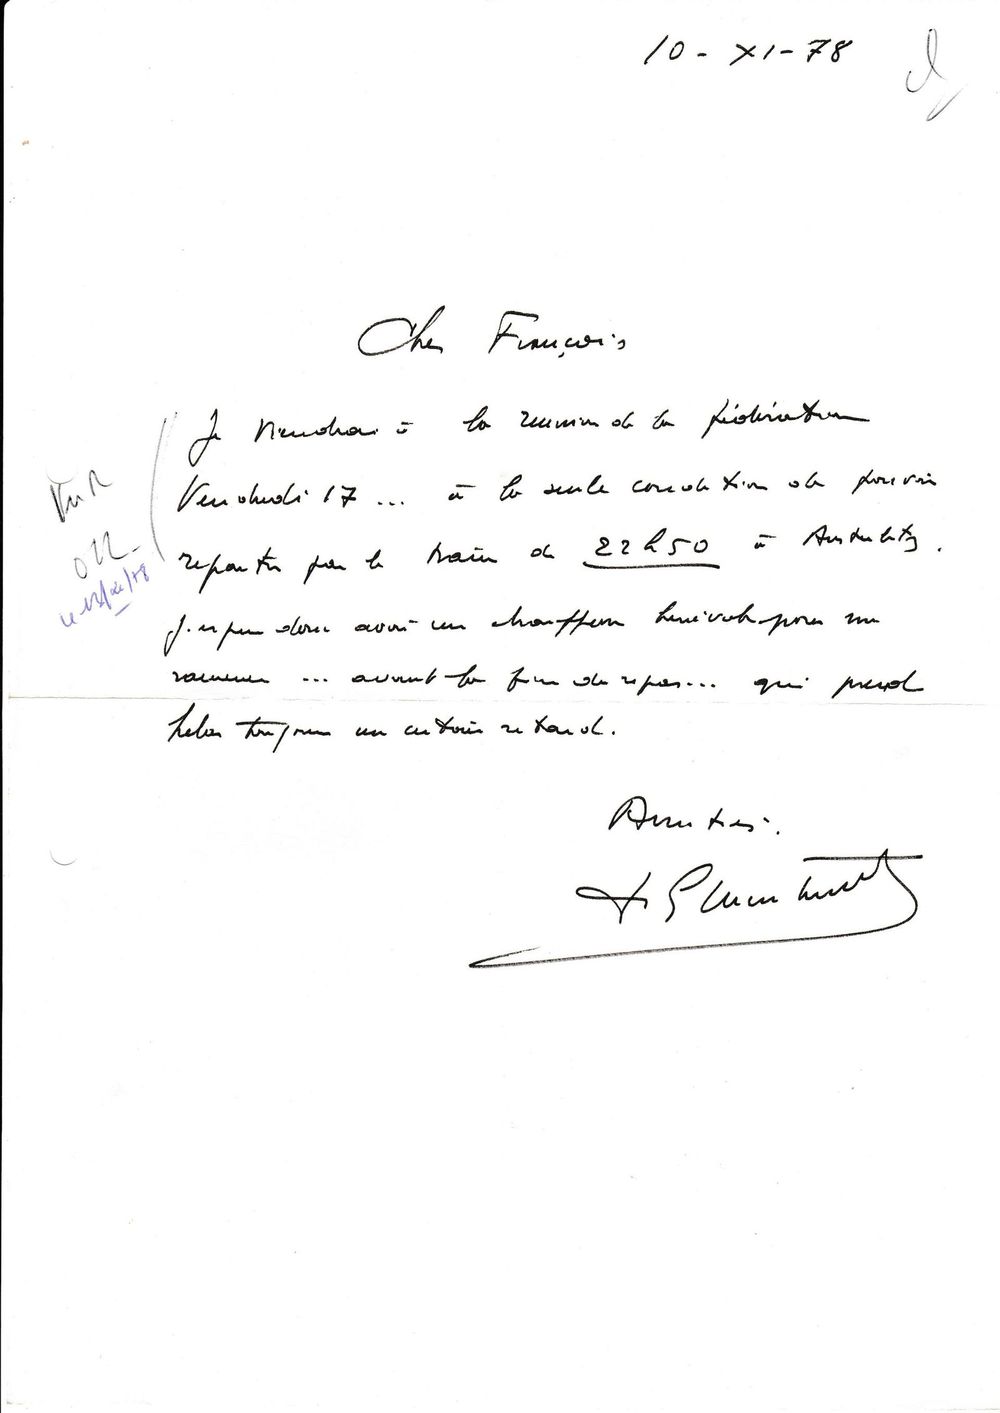 10 - XI - 78
Cher François
Je viendrai à la réunion de la fédération
Vendredi 17 ... à la seule condition de pouvoir
repartir par le train de 22h50 à Austerlitz.
J'espère donc avoir un chauffeur bénévole pour me
ramener ... avant la fin du repas... qui prend
hélas toujours un certain retard.
Amitiés.